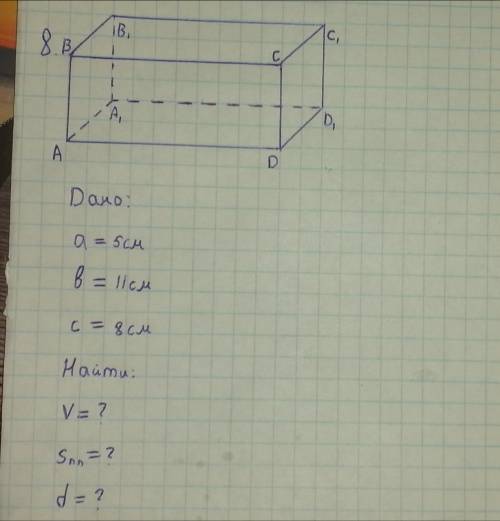 8.
B₁ C₁
B C
A₁ D₁
A D
Дано:
a = 5см
в = 11см
c = 8см
Найти:
V = ?
Sпп = ?
d = ?